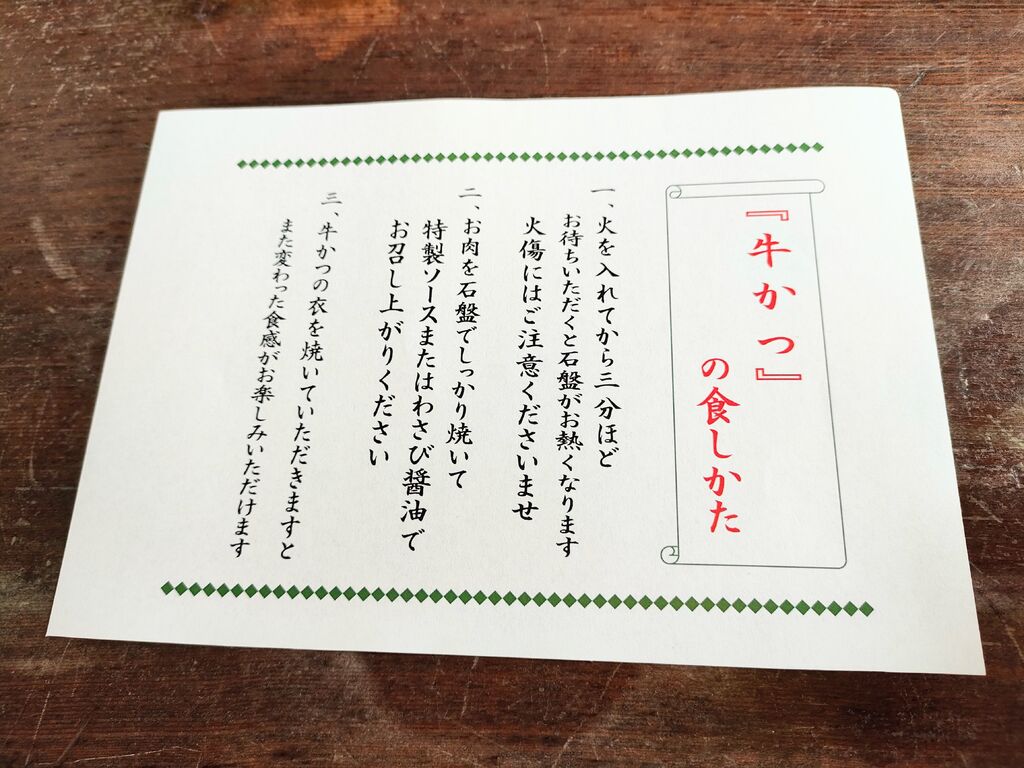 『牛かつ』
の食しかた
一、火を入れてから三分ほど
お待ちいただくと石盤がお熱くなります
火傷にはご注意くださいませ
二、お肉を石盤でしっかり焼いて
特製ソースまたはわさび醤油で
お召し上がりください
三、牛かつの衣を焼いていただきますと
また変わった食感がお楽しみいただけます